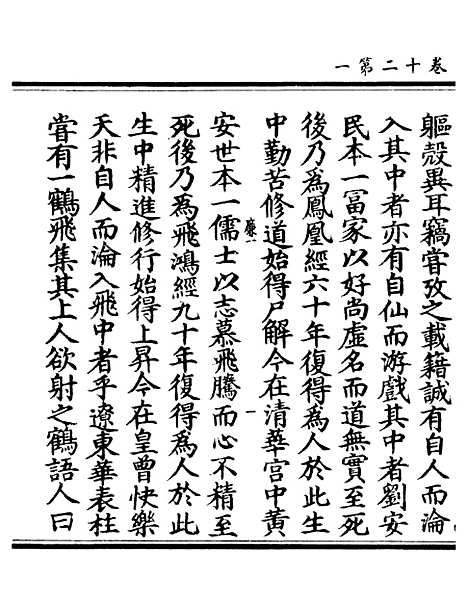 卷十二第一
軀殼異耳竊甞攷之載籍誠有自人而淪
入其中者亦有自仙而游戲其中者劉安
民本一冨家以好尚虚名而道無實至死
後乃為鳳凰經六十年復得為人於此生
中勤苦修道始得尸解今在清華宫中黃
安世本一儒士以志慕飛騰而心不精至
死後乃為飛鴻經九十年復得為人於此
生中精進修行始得上昇今在皇曾快樂
天非自人而淪入飛中者乎遼東華表柱
甞有一鶴飛集其上人欲射之鶴語人曰